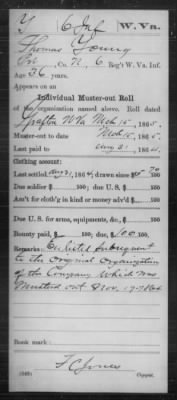 Y 6 Inf W. Va.
Thomas Young
Pvt., Co. N, 6 Reg't W. Va. Inf.
Age 36 years.
Appears on an
Individual Muster-out Roll
of the organization named above. Roll dated
Grafton W Va Mch 15, 1865.
Muster-out to date Mch 15, 1865.
Last paid to Aug 31, 1864.
Clothing account:
Last settled Aug 31, 1864; drawn since $ 70/100
Due soldier $ 100; due U. S. $ 100
Am't for cloth'g in kind or money adv'd $ 100
Due U. S. for arms, equipments, &c., $ 100
Bounty paid $ 100; due $ 100 100
Remarks: Enlisted subsequent
to the original organization
of the Company which was
mustered out Nov. 17-1864
Book mark:
Copyist.